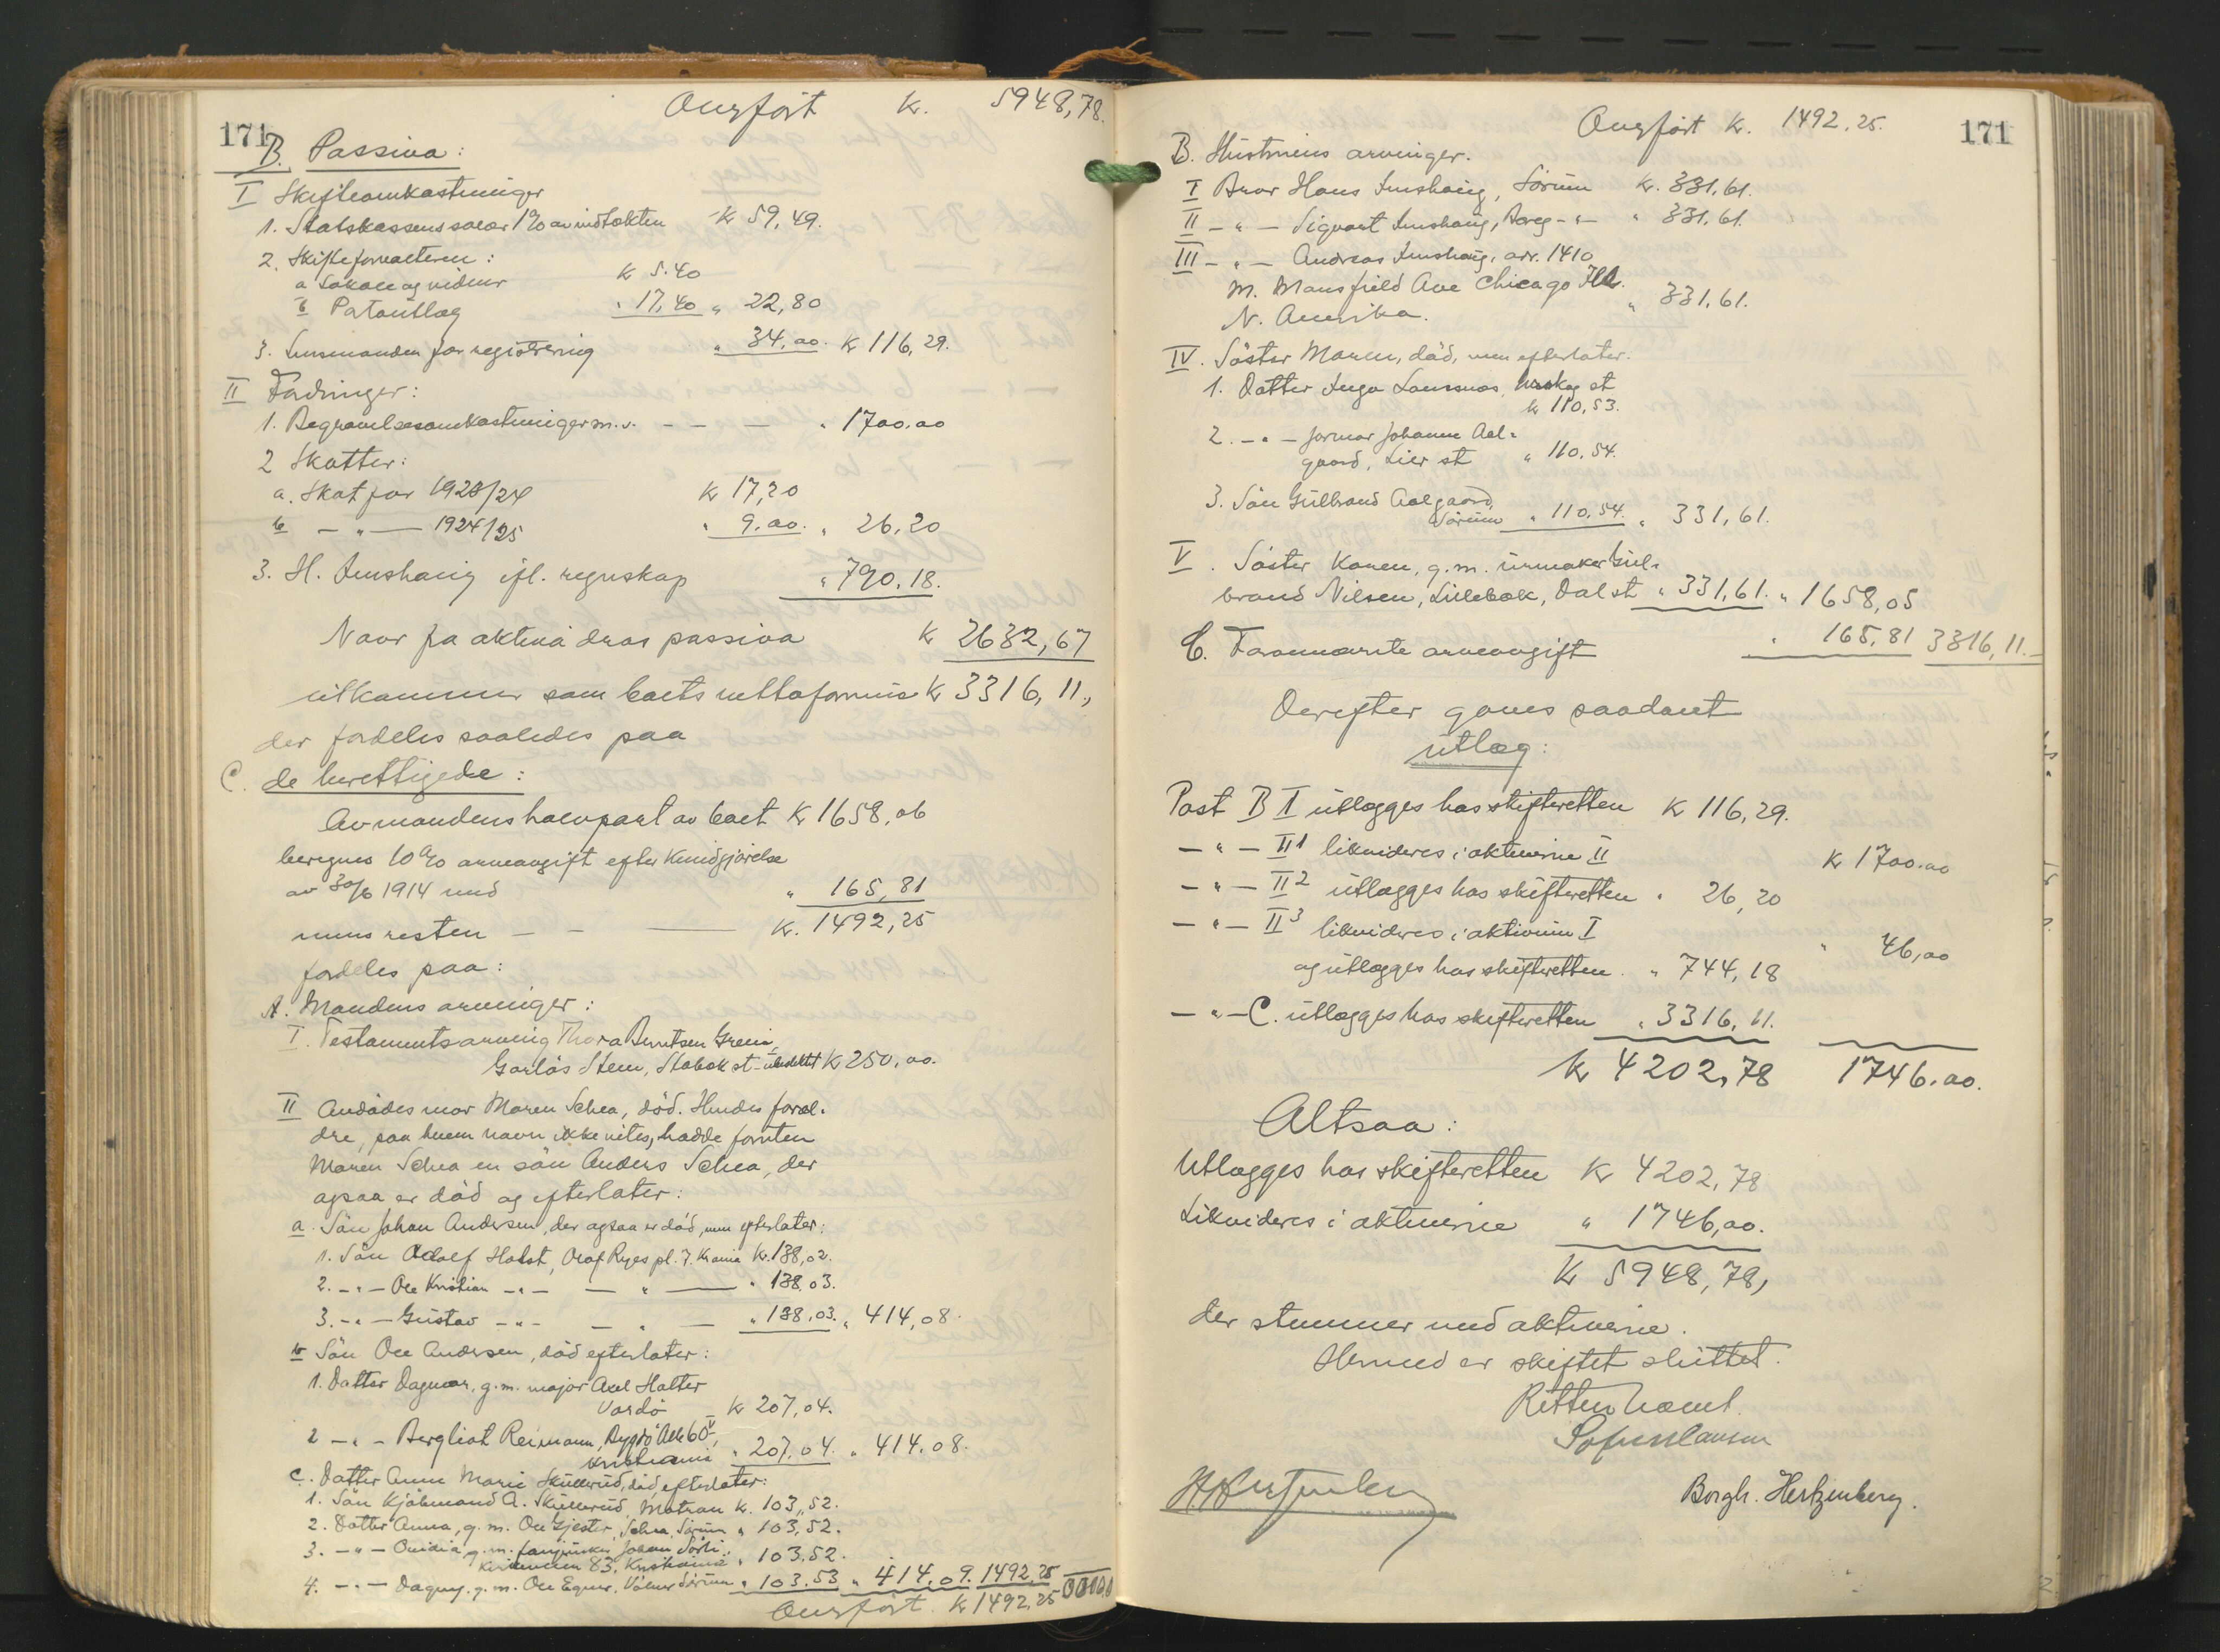 171
Overført kr. 5948,78.
B. Passiva:
I Skifteomkostninger
1. Statskassens salær 1% av indtækten kr 59,49.
2. Skifteforvalteren:
a Lokale og vidner kr 5.40
b Portoutlæg " 17,40 " 22,80
3. Lensmanden for registrering " 34,00. kr 116,29.
II Fordringer:
1. Begravelsesomkostninger m.v. - - - " 1700.00
2 Skatter:
a. Skat for 1923/24 kr 17,20
b - " - 1924/25 " 9.00. " 26,20
3. H. Imshaug ifl. regnskap " 790.18.
Naar fra aktiva dras passiva kr 2632,67
utkommer som boets nettoformue kr 3316,11,
der fordeles saaledes paa
C. de berettigede:
Av mandens halvpart av boet kr 1658,06
beregnes 10% arveavgift efter Kundgjørelse
av 30/6 1914 med " 165,81
mens resten - - - kr. 1492,25
fordeles paa:
A. Mandens arvinger:
I. Testamentsarving Thora Berntsen Greni,
Garlös Stem, Stabæk st - kr 250,00.
II Avdødes mor Maren Schea, död. Hendes foræl-
dre, paa hvem navn ikke vites, hadde foruten
Maren Schea en sön Anders Schea, der
ogsaa er död og efterlater:
a. Sön Johan Andersen, der ogsaa er död, men efterlater:
1. Sön Adolf Holst, Olaf Ryes pl. 7. Krania kr. 138,02.
2. - " - Ole Kristian - " - - " - " 138.03.
3. - " - Gustav - " - - " - " 138,03. " 414,08.
b Sön Ole Andersen, död efterlater:
1. Datter Dagmar, g.m. major Axel Holter
Vardö - kr 207,04.
2 - " - Bergliot Reimann, Bygdö Alle 60 V,
Kristiania " 207.04. " 414.08.
c. Datter Anne Marie Skullerud, död, efterlater:
1. Sön Kjöbmand A. Skullerud, Matran kr. 103,52.
2. Datter Anna, g.m. Ole Gjester, Schea, Sörum " 103,52.
3. - " - Ovidia g.m. Johan Sörli,
Kirkeveien 83, Kristiania " 103.52.
4. - " - Dagny, g.m. Ole Egner, Sörum " 103.53 " 414,09. 1492,25
Overført. kr 1492,25
171
Overført kr. 1492,25.
B. Hustruens arvinger.
I Bror Hans Imshaug, Sörum kr. 331,61.
II - " - Sigvart Imshaug, - " - " 331,61.
III - " - Andreas Imshaug, adr. 1410
M. Mansfield Ave Chicago Ill.
N. Amerika. " 331,61.
IV. Söster Maren, död, men efterlater.
1. Datter Inga Laussnos, st
kr 110,53.
2. - " - Jormor Johanne Aal-
gaard, Lier st " 110.54.
3. Sön Gulbrand Aalgaard,
Sörum " 110.54. " 331,61.
V. Söster Karen, g.m. urmaker Gul-
brand Nilsen, Lillebæk, Dal st " 331,61. " 1658,05
C. Forannævnte arveavgift " 165,81 3316,11.
Derefter gjøres saadant
utlæg:
Post B I utlægges hos skifteretten kr 116,29.
- " - II 1 likvideres i aktiverne II kr 1700.00
- " - II 2 utlægges hos skifteretten " 26,20
- " - II 3 likvideres i aktivum I " 46,00
og utlægges hos skifteretten " 744,18
- " - C. utlægges hos skifteretten " 3316,11.
kr 4202,78 1746.00.
Altsaa:
Utlægges hos skifteretten kr 4202,78
Likvideres i aktiverne " 1746,00.
kr 5948,78,
der stemmer med aktiverne.
Hermed er skiftet sluttet.
Retten hævet.
Sofus Hansen
Borgh. Hertzenberg.